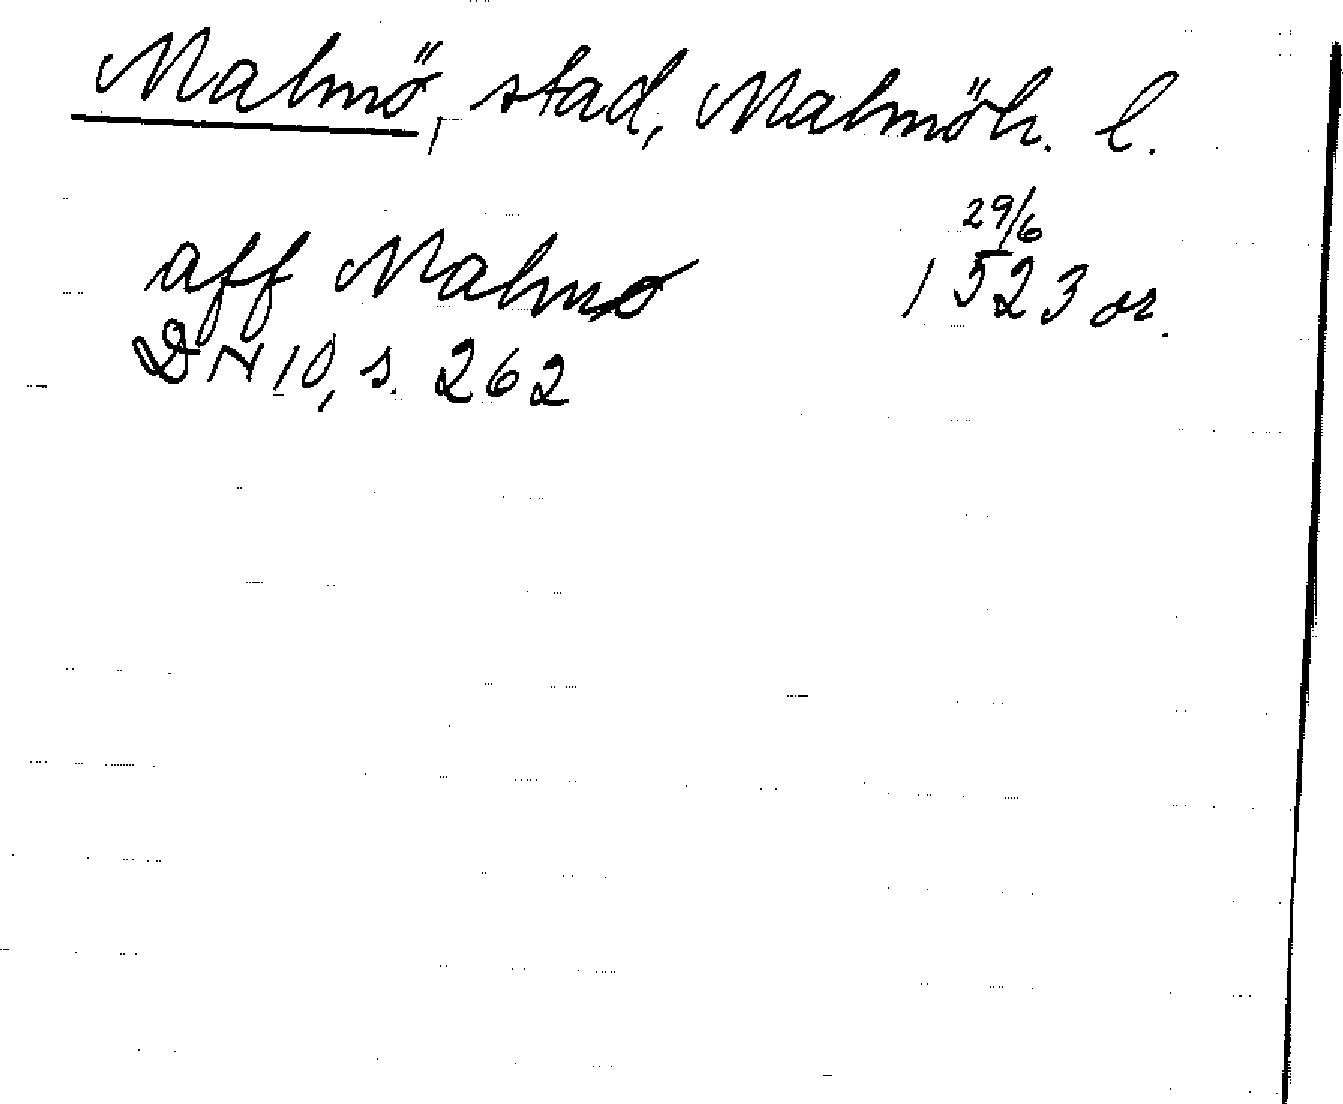 Malmö, stad, Malmöh. l.
29/6
aff Malmø 1523 or.
DN 10, s. 262